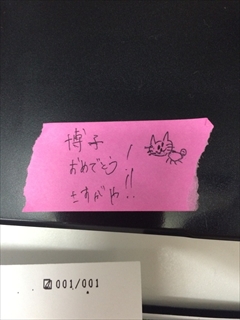 博子
おめでとう!
さすがや!!
001/001